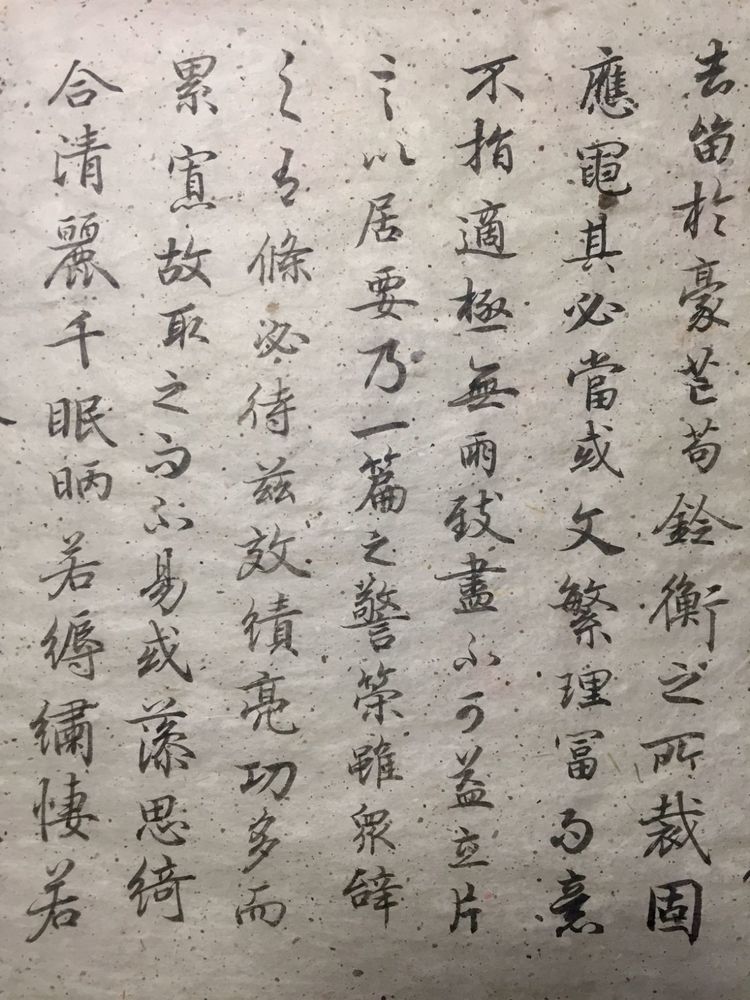 去留於豪芒苟銓衡之所裁固
應繩其必當或文繁理富而意
不指適極無兩致盡不可益立片
言以居要乃一篇之警策雖眾辭
之有條必待兹效績亮功多而
累寡故取之而不易或藻思綺
合清麗千眠昞若縟繡悽若